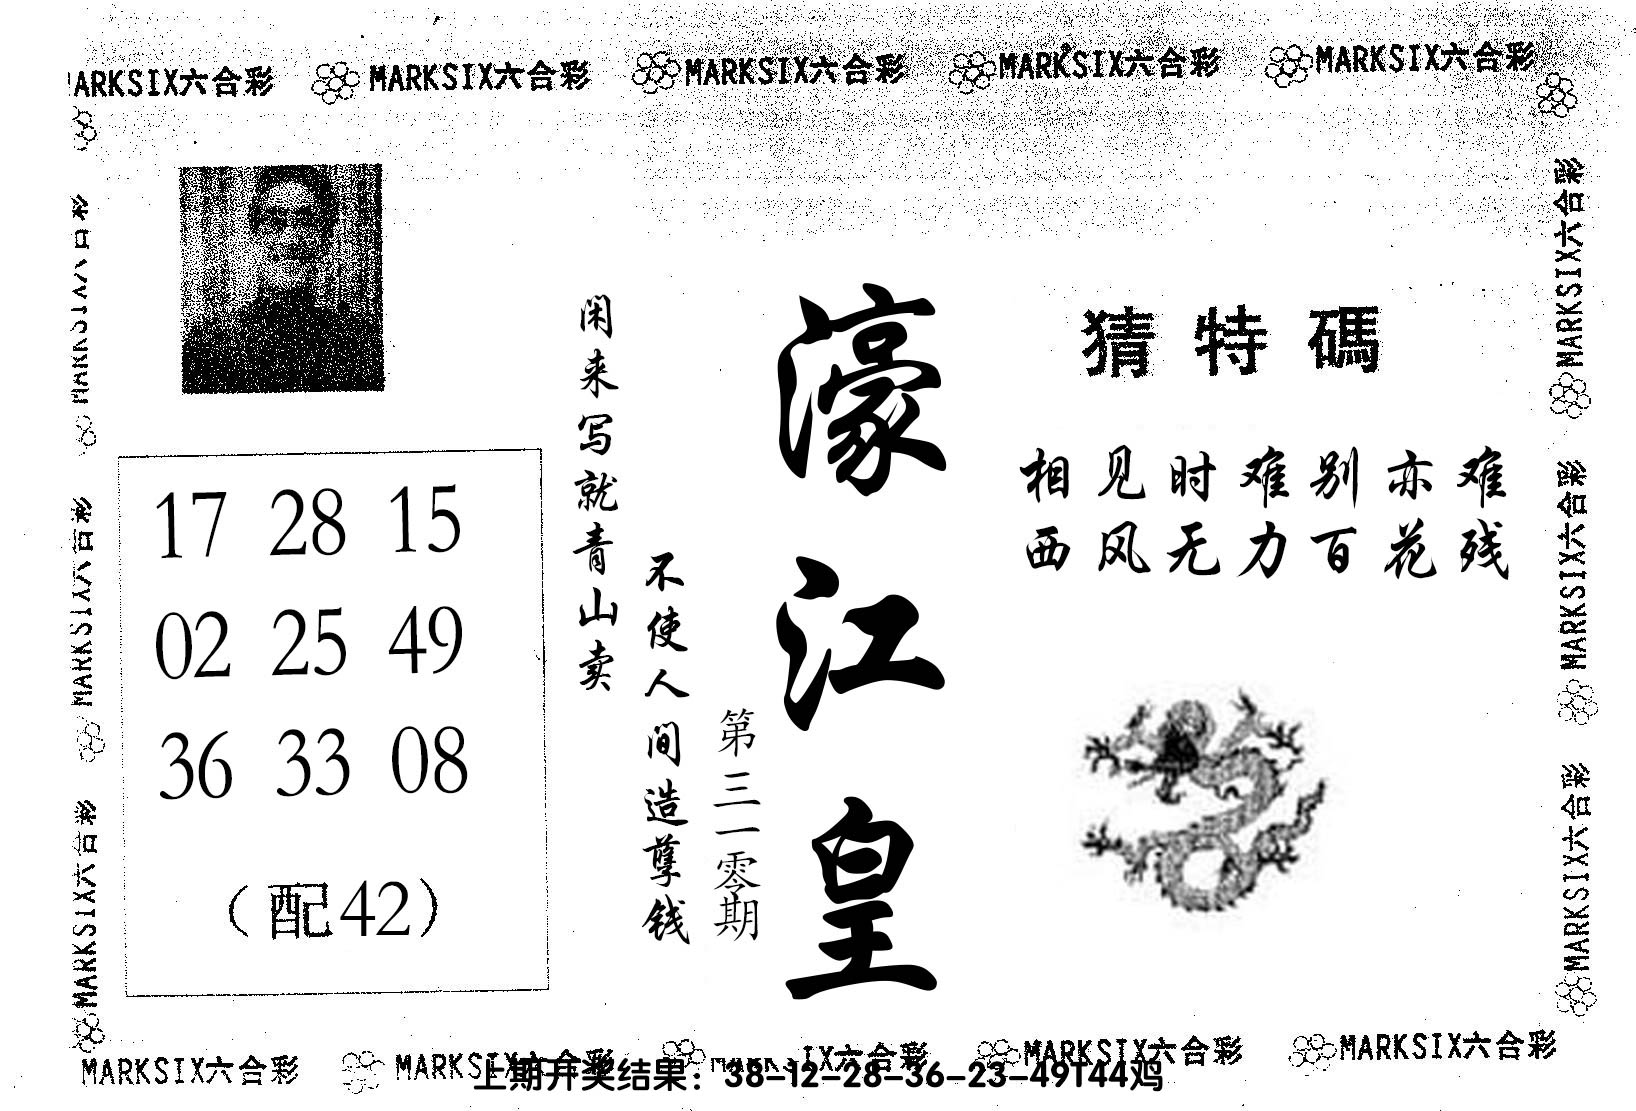 MARKSIX六合彩 MARKSIX六合彩 MARKSIX六合彩 MARKSIX六合彩 MARKSIX六合彩
MARKSIX六合彩
MARKSIX六合彩
MARKSIX六合彩
17 28 15
02 25 49
36 33 08
(配42)
闲来写就青山卖
不使人间造孽钱
第三一零期
濠江皇
猜特碼
相见时难别亦难
西风无力百花残
MARKSIX六合彩
MARKSIX六合彩
MARKSIX六合彩
MARKSIX六合彩 MARKSIX六合彩 MARKSIX六合彩 MARKSIX六合彩 MARKSIX六合彩
上期开奖结果：38-12-28-36-23-49T44鸡